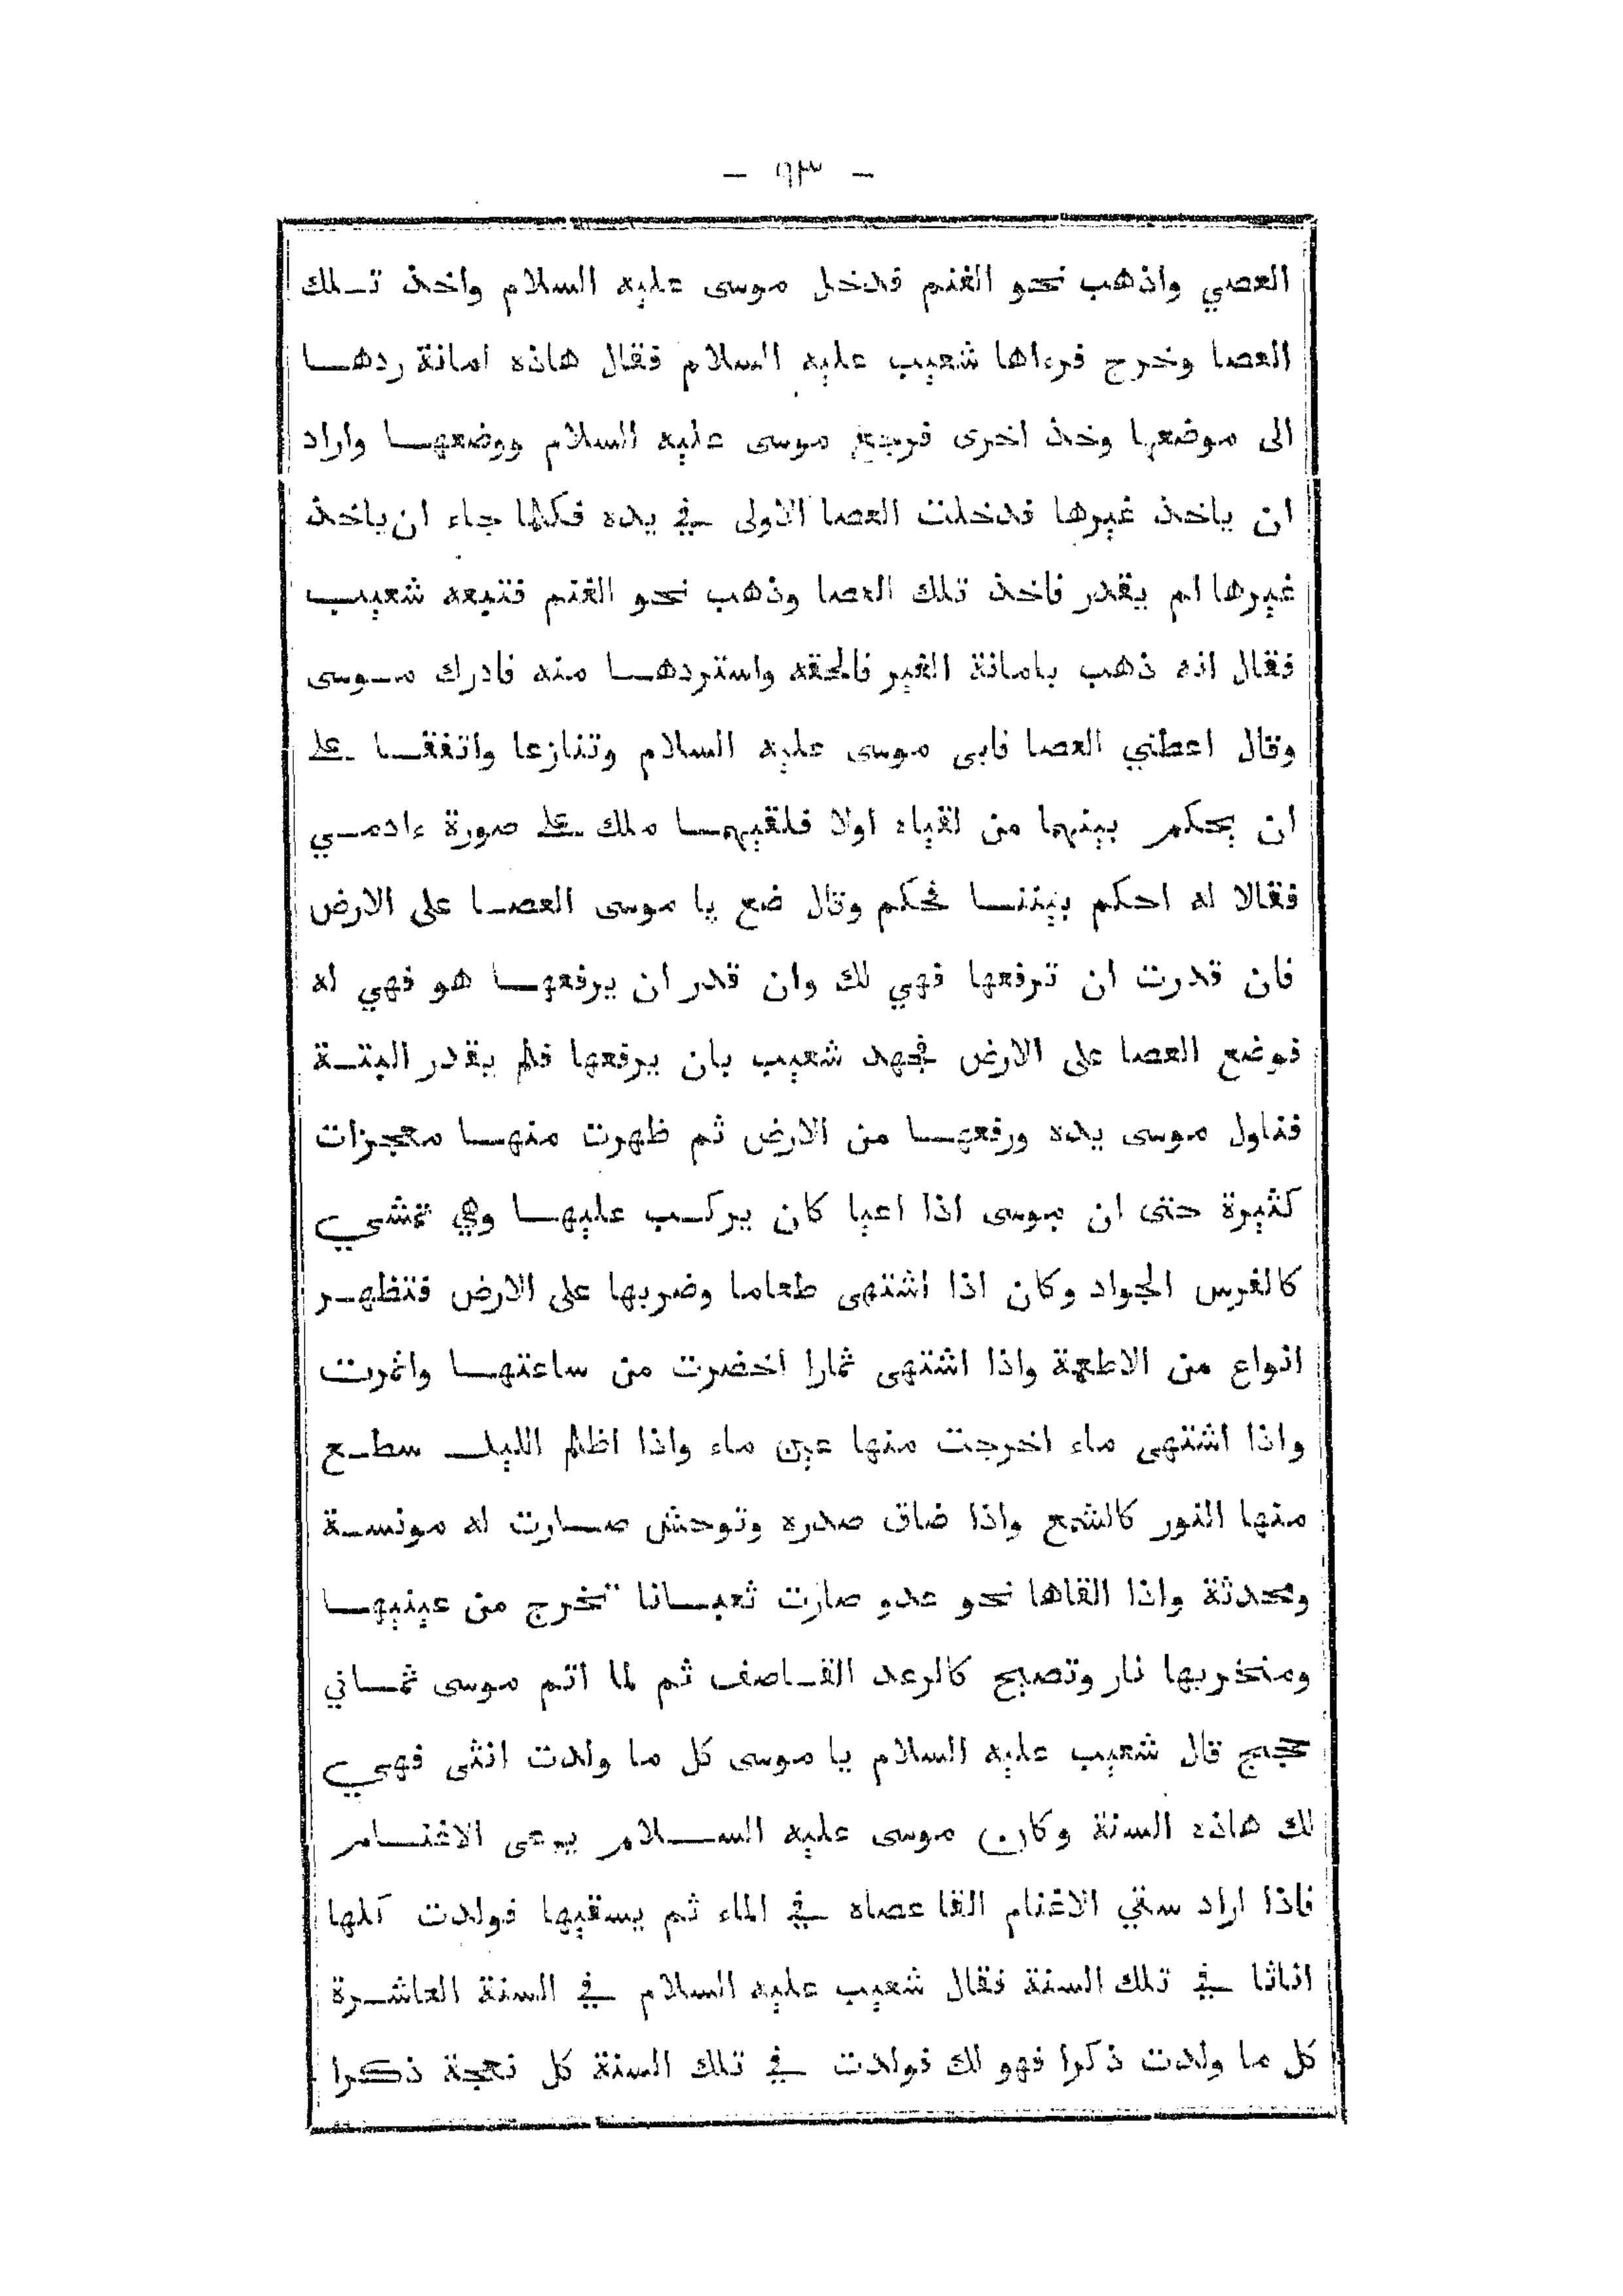 — ٩٣ —
العصي واذهب نحو الغنم فدخل موسى عليه السلام واخذ تلك
العصا وخرج فرءاها شعيب عليه السلام فقال هاذه امانة ردها
الى موضعها وخذ اخرى فرجع موسى عليه السلام ووضعها واراد
ان ياخذ غيرها فدخلت العصا الاولى في يده فكلما جاء ان ياخذ
غيرها لم يقدر فاخذ تلك العصا وذهب نحو الغنم فتبعه شعيب
فقال انه ذهب بامانة الغير فالحقه واستردها منه فادرك موسى
وقال اعطني العصا فابى موسى عليه السلام وتنازعا واتفقا على
ان يحكم بينهما من لقياه اولا فلقيهما ملك على صورة ءادمي
فقالا له احكم بيننا فحكم وقال ضع يا موسى العصا على الارض
فان قدرت ان ترفعها فهي لك وان قدر ان يرفعها هو فهي له
فوضع العصا على الارض فجهد شعيب بان يرفعها فلم يقدر البتة
فناول موسى يده ورفعها من الارض ثم ظهرت منها معجزات
كثيرة حتى ان موسى اذا اعيا كان يركب عليها وهي تمشي
كالفرس الجواد وكان اذا اشتهى طعاما وضربها على الارض فتظهر
انواع من الاطعمة واذا اشتهى ثمارا اخضرت من ساعتها واثمرت
واذا اشتهى ماء اخرجت منها عين ماء واذا اظلم الليل سطع
منها النور كالشمع واذا ضاق صدره وتوحش صارت له مونسة
ومحدثة واذا القاها نحو عدو صارت ثعبانا تخرج من عينيها
ومنخريها نار وتصيح كالرعد القاصف ثم لما اتم موسى ثماني
حجج قال شعيب عليه السلام يا موسى كل ما ولدت انثى فهي
لك هاذه السنة وكان موسى عليه السلام يرعى الاغنام
فاذا اراد سقي الاغنام القا عصاه في الماء ثم يسقيها فولدت كلها
اناثا في تلك السنة فقال شعيب عليه السلام في السنة العاشرة
كل ما ولدت ذكرا فهو لك فولدت في تلك السنة كل نعجة ذكرا